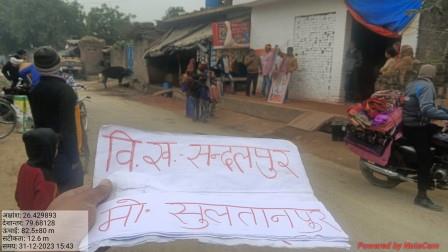 वि.ख. सन्दलपुर
मो. सुलतानपुर
अक्षांश: 26.429893
देशान्तर: 79.68128
ऊंचाई: 82.5±80 m
सटीकता: 12.6 m
समय: 31-12-2023 15:43
Powered by NoteCam